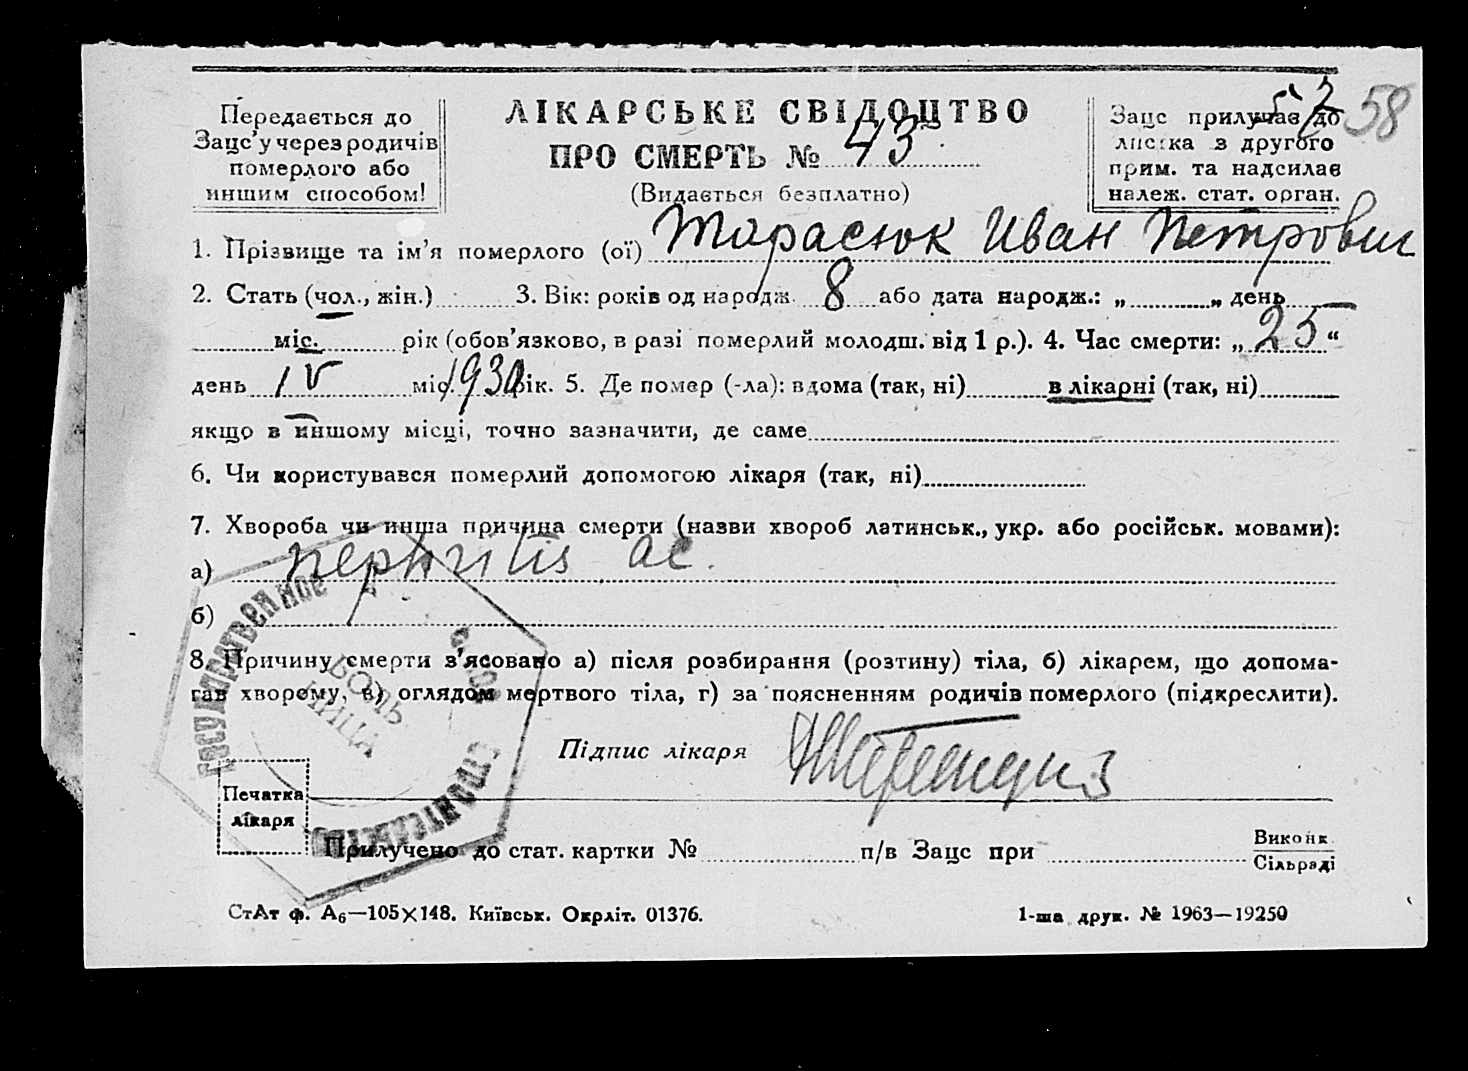 Передається до
Зацс'у через родичів
померлого або
иншим способом!
ЛІКАРСЬКЕ СВІДОЦТВО
ПРО СМЕРТЬ № 43
(Видається безплатно)
Зацс прилучає до
листка з другого
прим. та надсилає
належ. стат. орган.
57
58
1. Прізвище та ім'я померлого (ої) Тарасюк Иван Петрович
2. Стать (чол., жін.) 3. Вік: років од народж. 8 або дата народж.: „ „ день
міс. рік (обов'язково, в разі померлий молодш. від 1 р.). 4. Час смерти: „ 25 “
день IV міс. 1930 рік. 5. Де помер (-ла): вдома (так, ні) в лікарні (так, ні)
якщо в иншому місці, точно зазначити, де саме
6. Чи користувався померлий допомогою лікаря (так, ні)
7. Хвороба чи инша причина смерти (назви хвороб латинськ., укр. або російськ. мовами):
а) nephritis ac.
б)
8. Причину смерти з'ясовано а) після розбирання (розтину) тіла, б) лікарем, що допома-
гав хворому, в) оглядом мертвого тіла, г) за поясненням родичів померлого (підкреслити).
Государственное
строительство
БОЛЬ
НИЦА
Підпис лікаря
Печатка
лікаря
Прилучено до стат. картки № п/в Зацс при Виконк.
Сільраді
СтАт ф. А6—105×148. Київськ. Окрліт. 01376. 1-ша друк. № 1963—19250